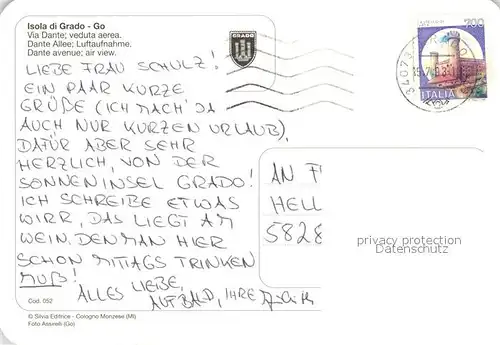 Isola di Grado - Go
Via Dante; veduta aerea.
Dante Allee; Luftaufnahme.
Dante avenue; air view.
700
ITALIA
34073
LIEBE FRAU SCHULZ!
EIN PAAR KURZE
GRÜẞE (ICH MACH' JA
AUCH NUR KURZEN URLAUB),
DAFÜR ABER SEHR
HERZLICH, VON DER
SONNENINSEL GRADO!
ICH SCHREIBE ETWAS
WIRR, DAS LIEGT AM
WEIN. DEN MAN HIER
SCHON MITTAGS TRINKEN
MUẞ!
ALLES LIEBE,
AUF BALD, IHRE
AN F
HELL
5828
privacy protection
Datenschutz
Cod. 052
© Silvia Editrice - Cologno Monzese (MI)
Foto Assirelli (Go)